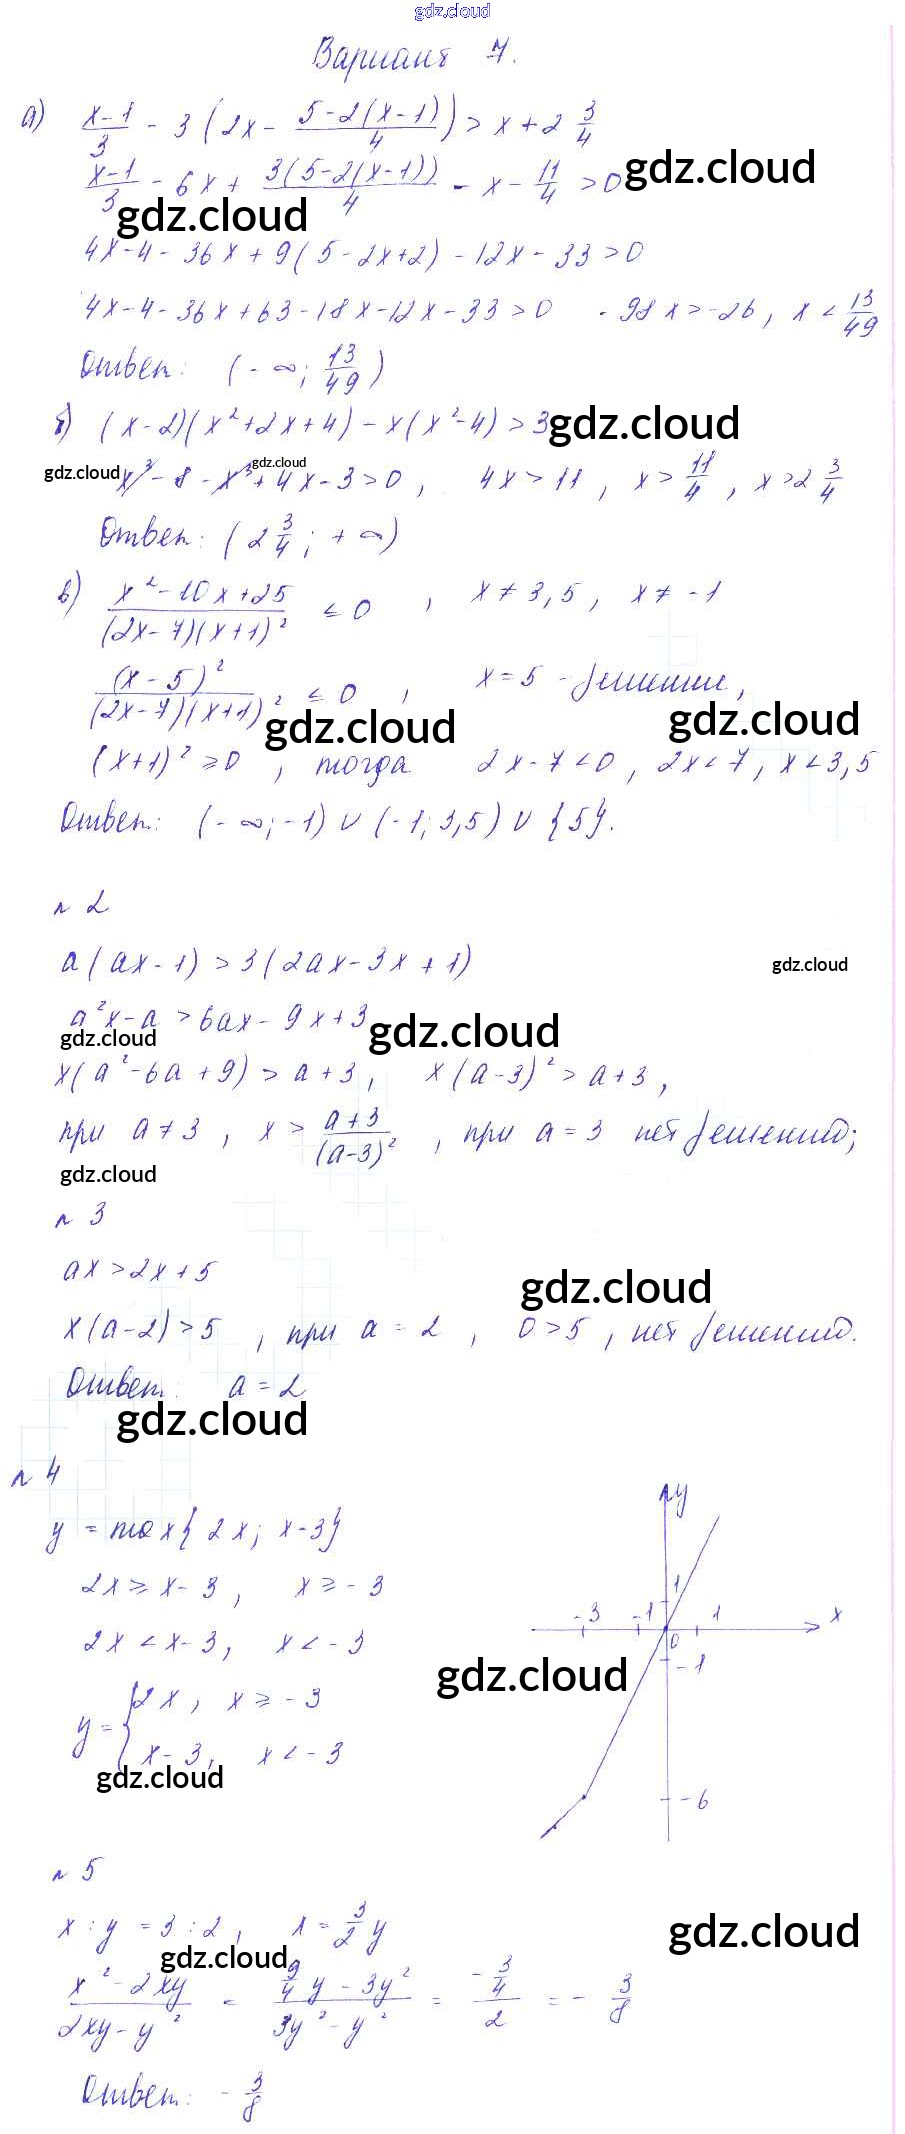 gdz.cloud
Вариант 7.
а) (x-1)/3 - 3(2x - (5-2(x-1))/4) > x + 2 3/4
(x-1)/3 - 6x + 3(5-2(x-1))/4 - x - 11/4 > 0 gdz.cloud
gdz.cloud
4x-4-36x+9(5-2x+2)-12x-33>0
4x-4-36x+63-18x-12x-33>0 -98x>-26, x< 13/49
Ответ: (-∞; 13/49)
б) (x-2)(x²+2x+4)-x(x²-4)>3 gdz.cloud
gdz.cloud x³-8-x³+4x-3>0, 4x>11, x> 11/4, x>2 3/4 gdz.cloud
Ответ: (2 3/4; +∞)
в) (x²-10x+25)/((2x-7)(x+1)²) ≤ 0, x≠3,5, x≠-1
(x-5)²/((2x-7)(x+1)²) ≤ 0, x=5 - решение,
gdz.cloud gdz.cloud
(x+1)²≥0, тогда 2x-7<0, 2x<7, x<3,5
Ответ: (-∞;-1)∪(-1;3,5)∪{5}.
n 2
a(ax-1)>3(2ax-3x+1) gdz.cloud
a²x-a>6ax-9x+3 gdz.cloud
gdz.cloud
x(a²-6a+9)>a+3, x(a-3)²>a+3,
при a≠3, x> (a+3)/(a-3)², при a=3 нет решений;
gdz.cloud
n 3
ax>2x+5 gdz.cloud
x(a-2)>5, при a=2, 0>5, нет решений.
Ответ: a=2
gdz.cloud
n 4
y=max{2x; x-3}
2x≥x-3, x≥-3
2x<x-3, x<-3
y={2x, x≥-3
x-3, x<-3
gdz.cloud
y
1
-3 -1 1 x
0
-1
gdz.cloud
-6
n 5
x:y=3:2, x= 3/2 y gdz.cloud
gdz.cloud
(x²-2xy)/(2xy-y²) = (9/4 y-3y²)/(3y²-y²) = (-3/4)/2 = - 3/8
Ответ: - 3/8